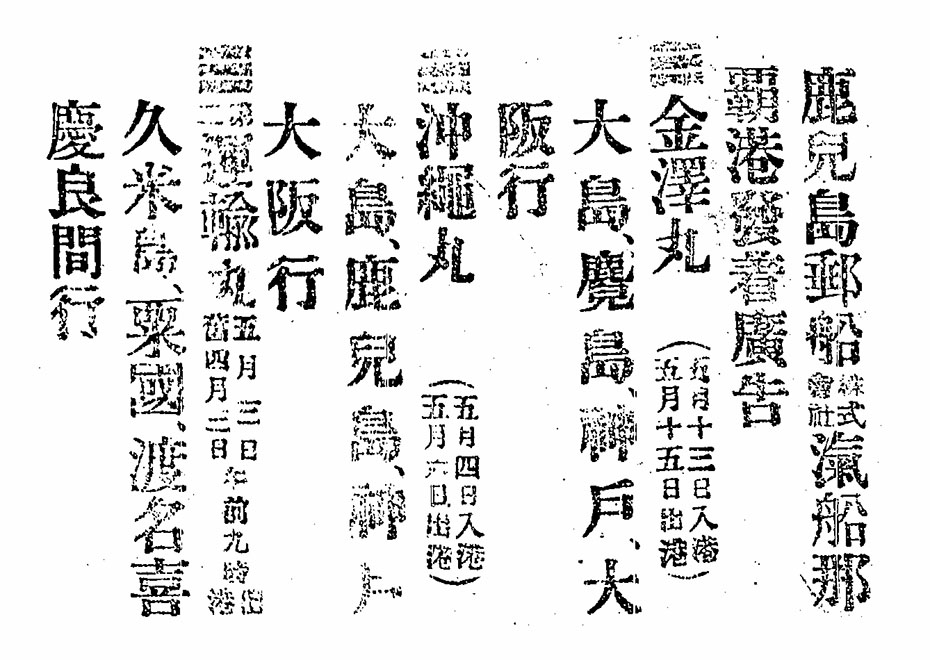 鹿兒島郵船株式會社汽船那
覇港發着廣告
金澤丸(五月十三日入港
五月十五日出港)
大島、麑島、神戶、大
阪行
沖繩丸(五月四日入港
五月六日出港)
大島、鹿兒島、神戶
大阪行
運輸丸五月三日
舊四月二日午前九時出港
久米島、粟國、渡名喜
慶良間行